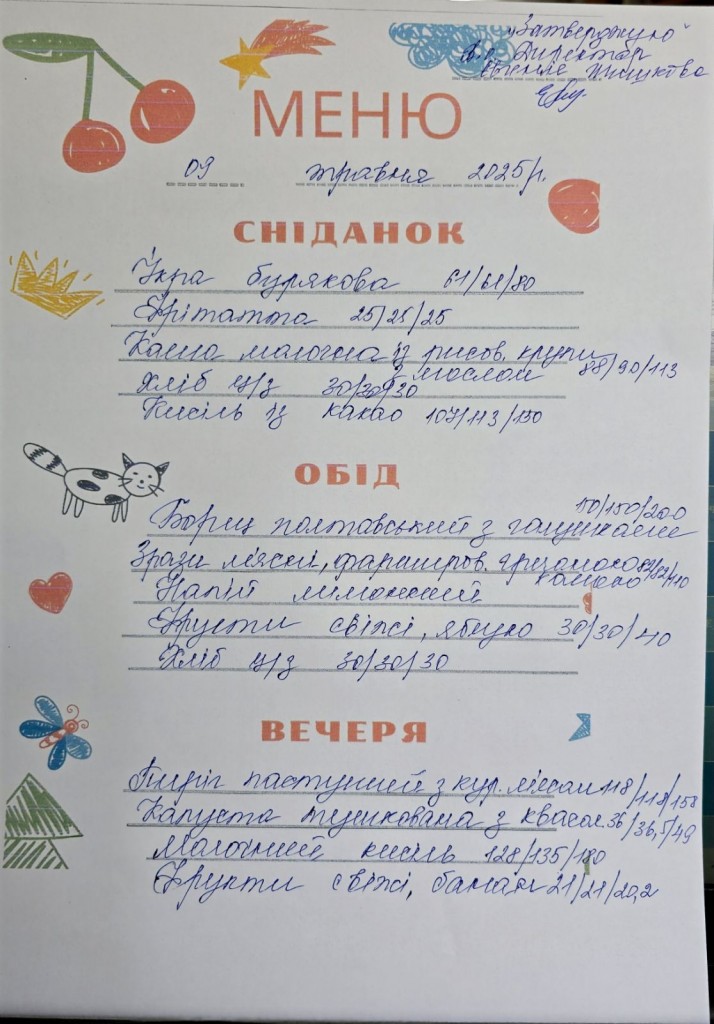 „Затверджую"
В.о. Директор
МЕНЮ
09 травня 2025р.
СНІДАНОК
Ікра бурякова 61/61/80
Фрітатта 25/25/25
Каша молочна із рисов. крупи
з маслом 88/90/113
Хліб ц/з 30/30/30
Кисіль із какао 107/113/150
ОБІД
Борщ полтавський з галушками 150/150/200
Зрази м'ясні, фарширов.
Напій лимонний
Фрукти свіжі, яблуко 30/30/40
Хліб ц/з 30/30/30
ВЕЧЕРЯ
Пиріг пастуший з кур. м'ясом 118/118/158
Капуста тушкована з квасол. 36/36,5/49
Молочний кисіль 128/135/180
Фрукти свіжі, банан 21/21/20,2